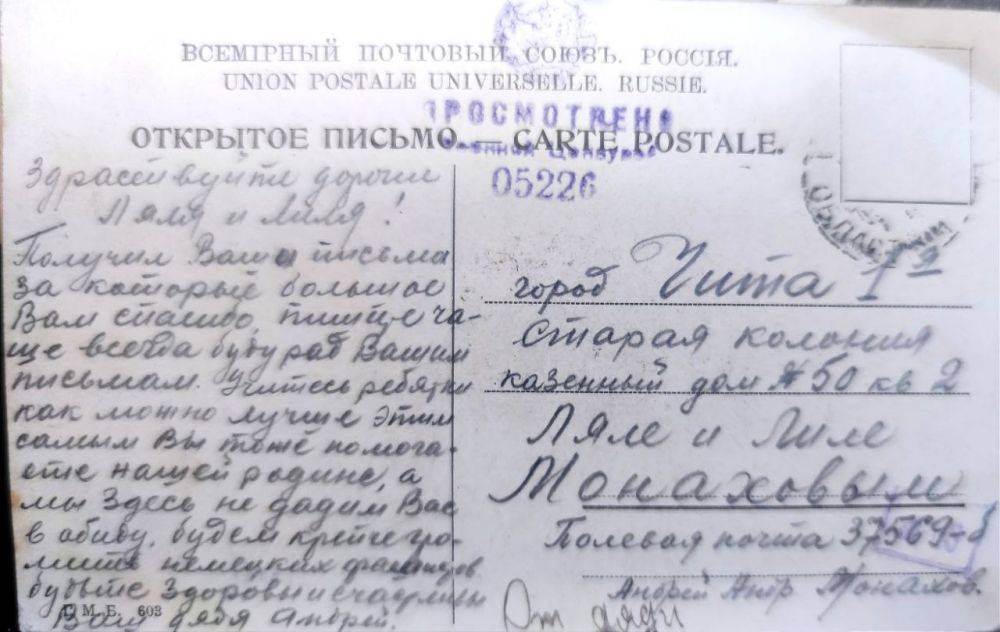 ВСЕМІРНЫЙ ПОЧТОВЫЙ СОЮЗЪ. РОССІЯ.
UNION POSTALE UNIVERSELLE. RUSSIE.
ПРОСМОТРЕНО
ОТКРЫТОЕ ПИСЬМО. — CARTE POSTALE.
Военной Цензурой
05226
Здраствуйте дорогие
Ляля и Лиля!
Получил Ваши письма
за которые большое
Вам спасибо, пишите ча-
ще всегда буду рад Вашим
письмам. Учитесь ребятки
как можно лучше этим
самым Вы тоже помога-
ете нашей родине, а
мы здесь не дадим Вас
в обиду. будем крепче гро-
мить немецких фашистов
будьте здоровы и счастливы
Ваш дядя Андрей.
С. М. Б. 603
ОБЛАСТ
город Чита 1я
старая колония
казенный дом № 50 кв 2
Ляле и Лиле
Монаховым
Полевая почта 37569-б
Андрей Монахов.
От дяди